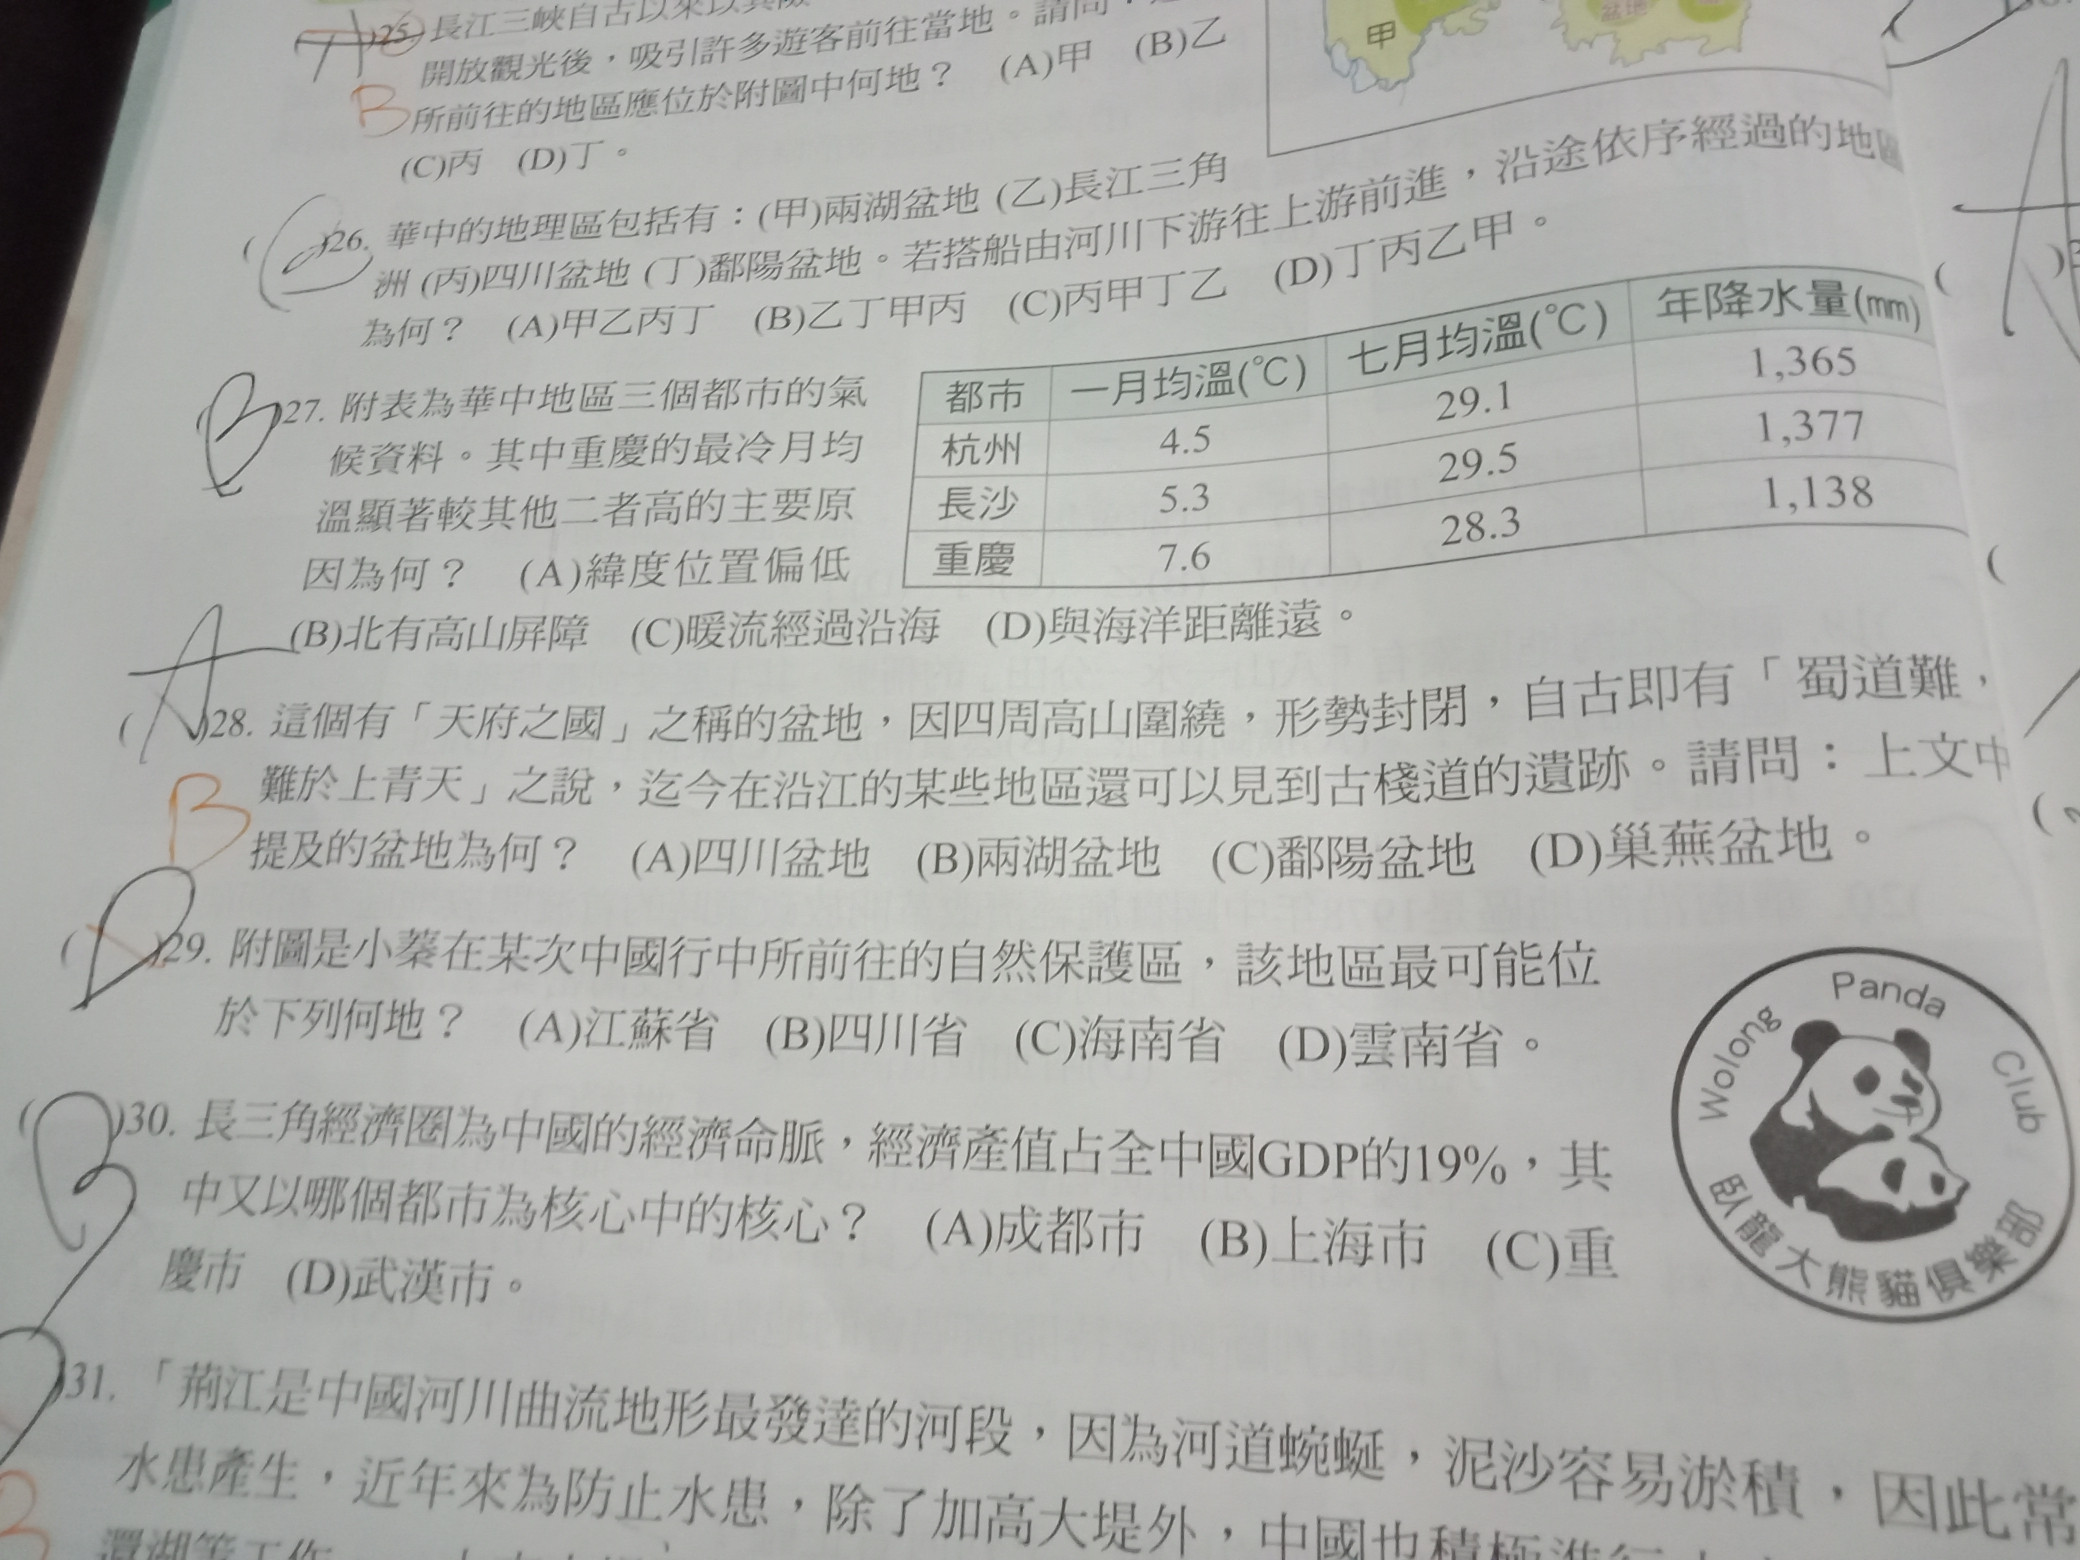 25. 長江三峽自古以來以其險
開放觀光後，吸引許多遊客前往當地。請問：
所前往的地區應位於附圖中何地？ (A)甲 (B)乙
(C)丙 (D)丁。
甲
盆地
B
( C )26. 華中的地理區包括有：(甲)兩湖盆地 (乙)長江三角
洲 (丙)四川盆地 (丁)鄱陽盆地。若搭船由河川下游往上游前進，沿途依序經過的地區
為何？ (A)甲乙丙丁 (B)乙丁甲丙 (C)丙甲丁乙 (D)丁丙乙甲。
B
27. 附表為華中地區三個都市的氣
候資料。其中重慶的最冷月均
溫顯著較其他二者高的主要原
因為何？ (A)緯度位置偏低
(B)北有高山屏障 (C)暖流經過沿海 (D)與海洋距離遠。
都市 一月均溫(℃) 七月均溫(℃) 年降水量(mm)
杭州 4.5 29.1 1,365
長沙 5.3 29.5 1,377
重慶 7.6 28.3 1,138
( A )28. 這個有「天府之國」之稱的盆地，因四周高山圍繞，形勢封閉，自古即有「蜀道難，
難於上青天」之說，迄今在沿江的某些地區還可以見到古棧道的遺跡。請問：上文中
提及的盆地為何？ (A)四川盆地 (B)兩湖盆地 (C)鄱陽盆地 (D)巢蕪盆地。
B
( D )29. 附圖是小蓁在某次中國行中所前往的自然保護區，該地區最可能位
於下列何地？ (A)江蘇省 (B)四川省 (C)海南省 (D)雲南省。
Wolong Panda Club
臥龍大熊貓俱樂部
( B )30. 長三角經濟圈為中國的經濟命脈，經濟產值占全中國GDP的19%，其
中又以哪個都市為核心中的核心？ (A)成都市 (B)上海市 (C)重
慶市 (D)武漢市。
31. 「荊江是中國河川曲流地形最發達的河段，因為河道蜿蜒，泥沙容易淤積，因此常
水患產生，近年來為防止水患，除了加高大堤外，中國也積極進行
還湖等工作